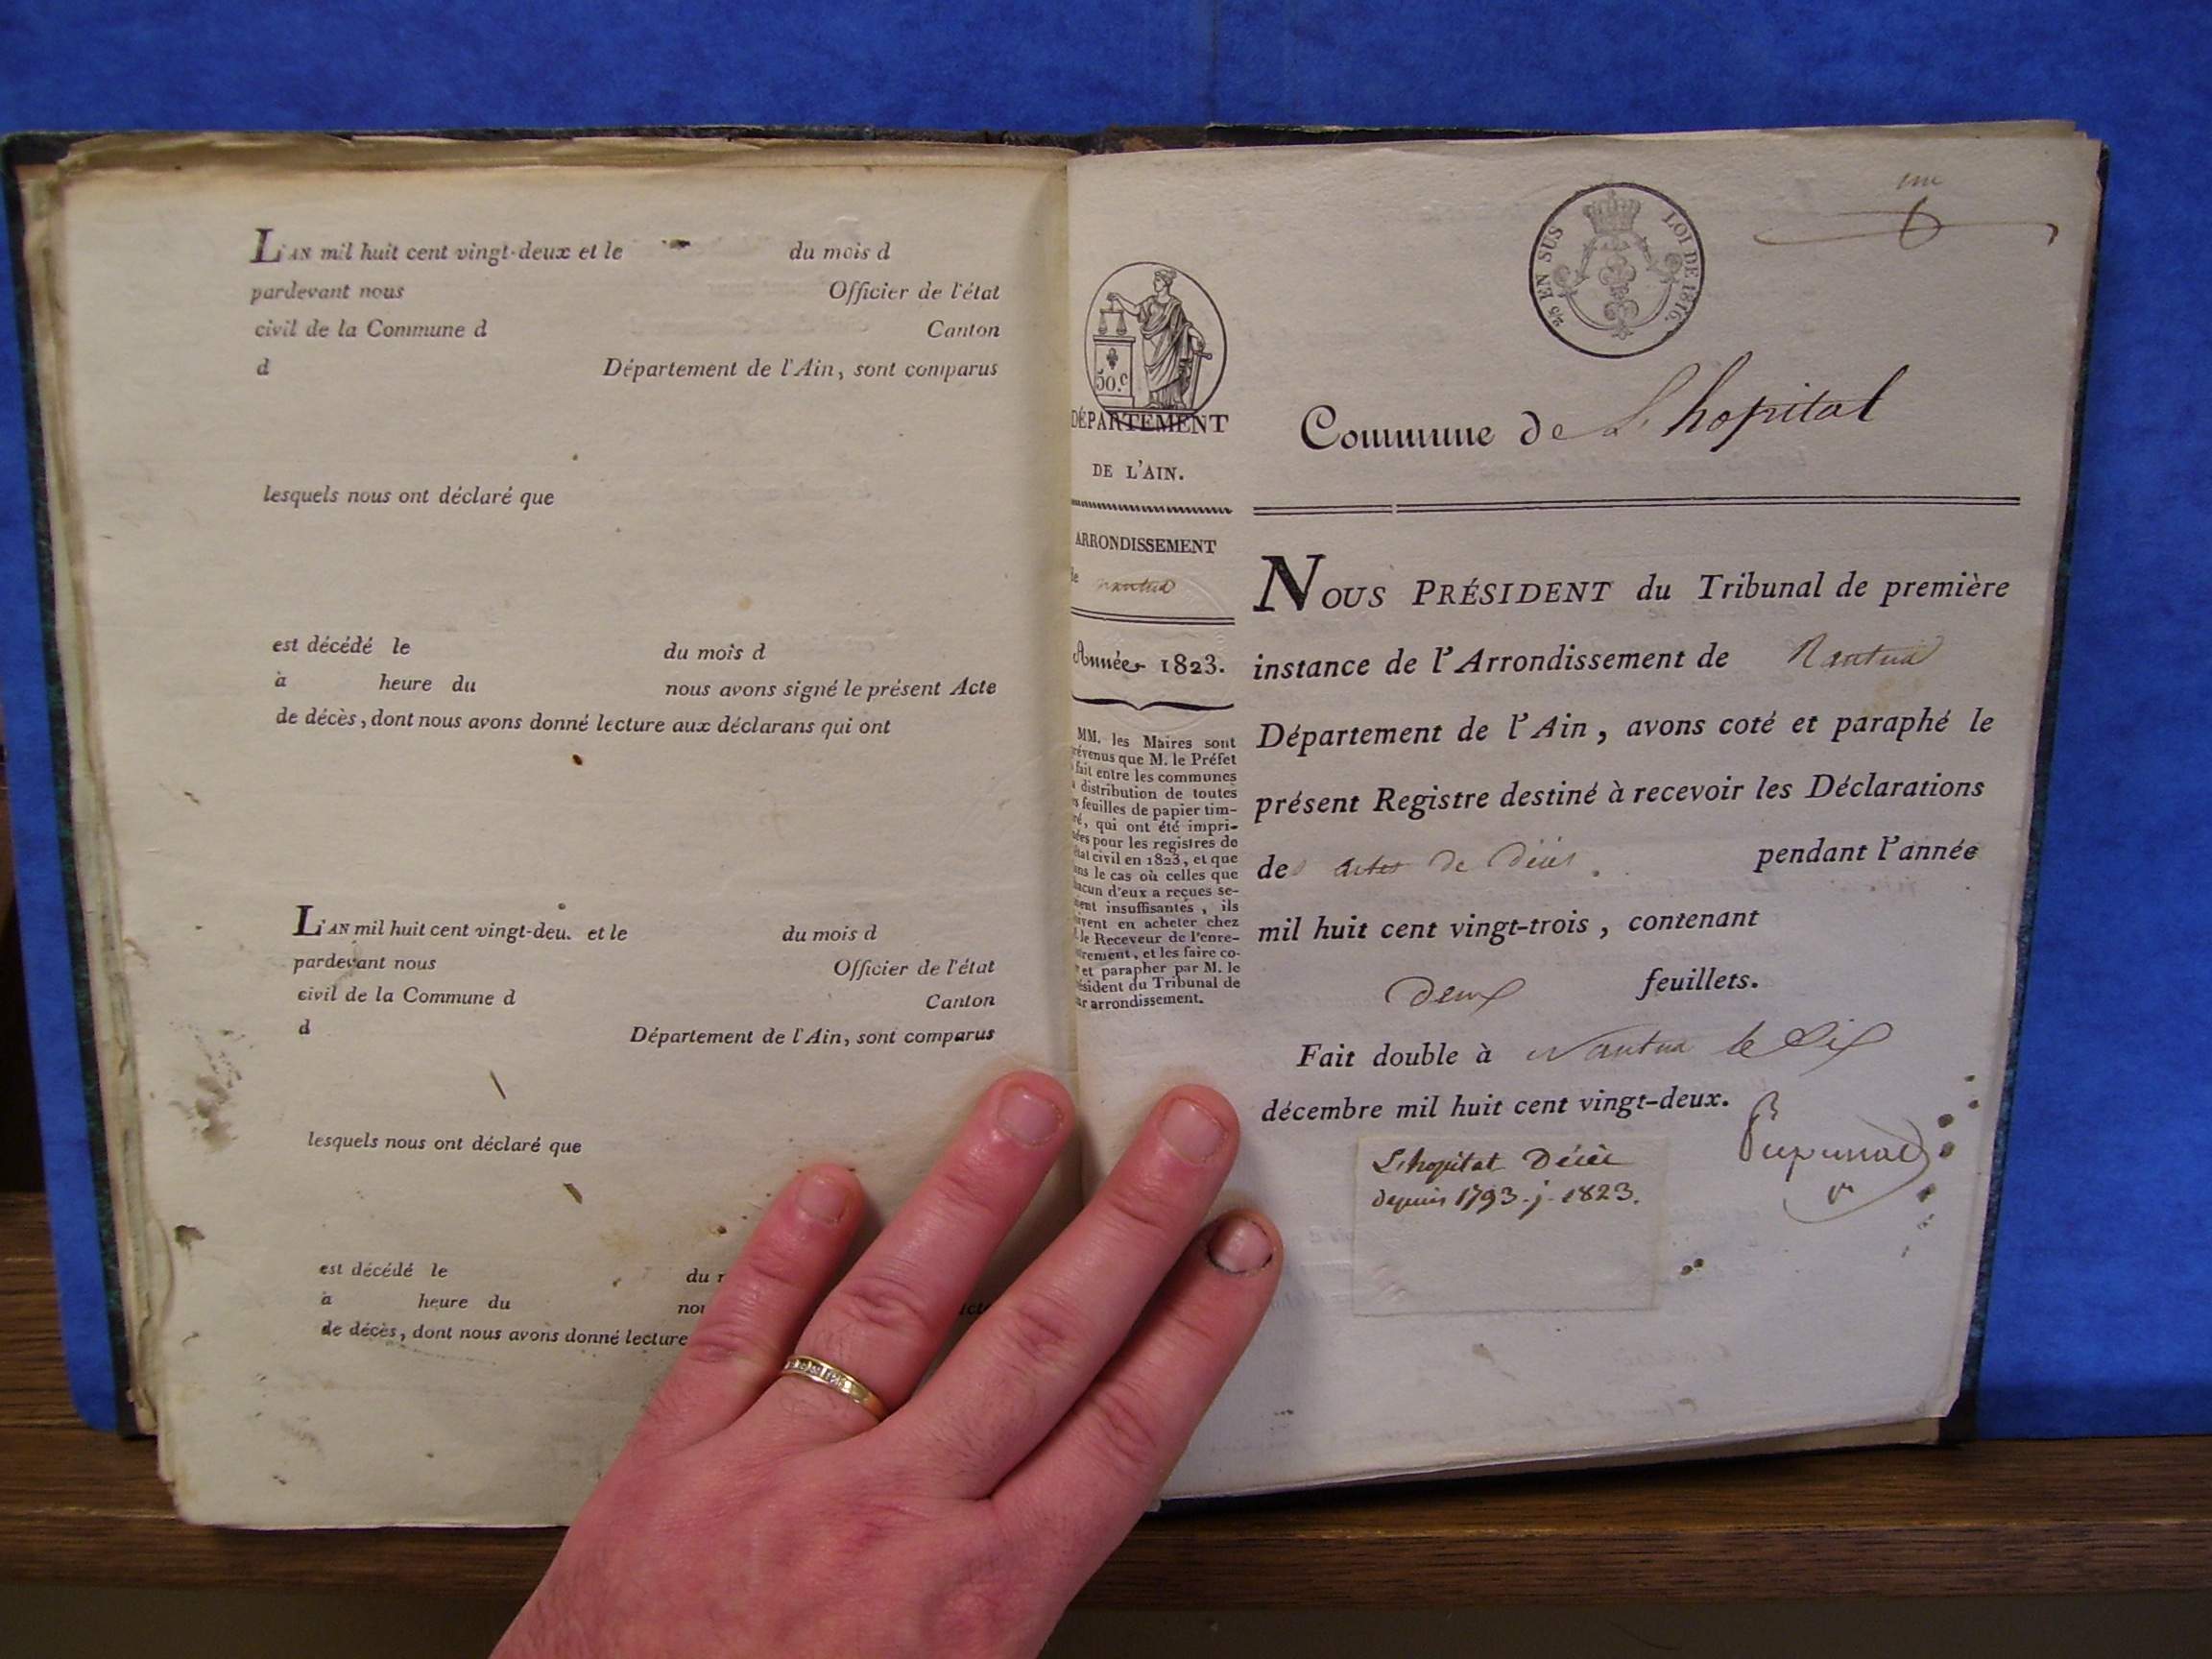 L'AN mil huit cent vingt-deux et le du mois d
pardevant nous Officier de l'état
civil de la Commune d Canton
d Département de l'Ain, sont comparus
lesquels nous ont déclaré que
est décédé le du mois d
à heure du nous avons signé le présent Acte
de décès, dont nous avons donné lecture aux déclarans qui ont
L'AN mil huit cent vingt-deu. et le du mois d
pardevant nous Officier de l'état
civil de la Commune d Canton
d Département de l'Ain, sont comparus
lesquels nous ont déclaré que
est décédé le du
à heure du
de décès, dont nous avons donné lecture
25 EN SUS LOI DE 1816.
50.c
DÉPARTEMENT
DE L'AIN.
ARRONDISSEMENT
de Nantua
Année 1823.
MM. les Maires sont
révenus que M. le Préfet
fait entre les communes
distribution de toutes
s feuilles de papier tim-
ré, qui ont été impri-
ées pour les registres de
tat civil en 1823, et que
ns le cas où celles que
acun d'eux a reçues se-
ent insuffisantes, ils
ivent en acheter chez
le Receveur de l'enre-
trement, et les faire co-
et parapher par M. le
ésident du Tribunal de
ur arrondissement.
Commune de L'hopital
NOUS PRÉSIDENT du Tribunal de première
instance de l'Arrondissement de Nantua
Département de l'Ain, avons coté et paraphé le
présent Registre destiné à recevoir les Déclarations
des actes de décès. pendant l'année
mil huit cent vingt-trois, contenant
deux feuillets.
Fait double à Nantua le Six
décembre mil huit cent vingt-deux.
L'hopital Décès
depuis 1793-j-1823.